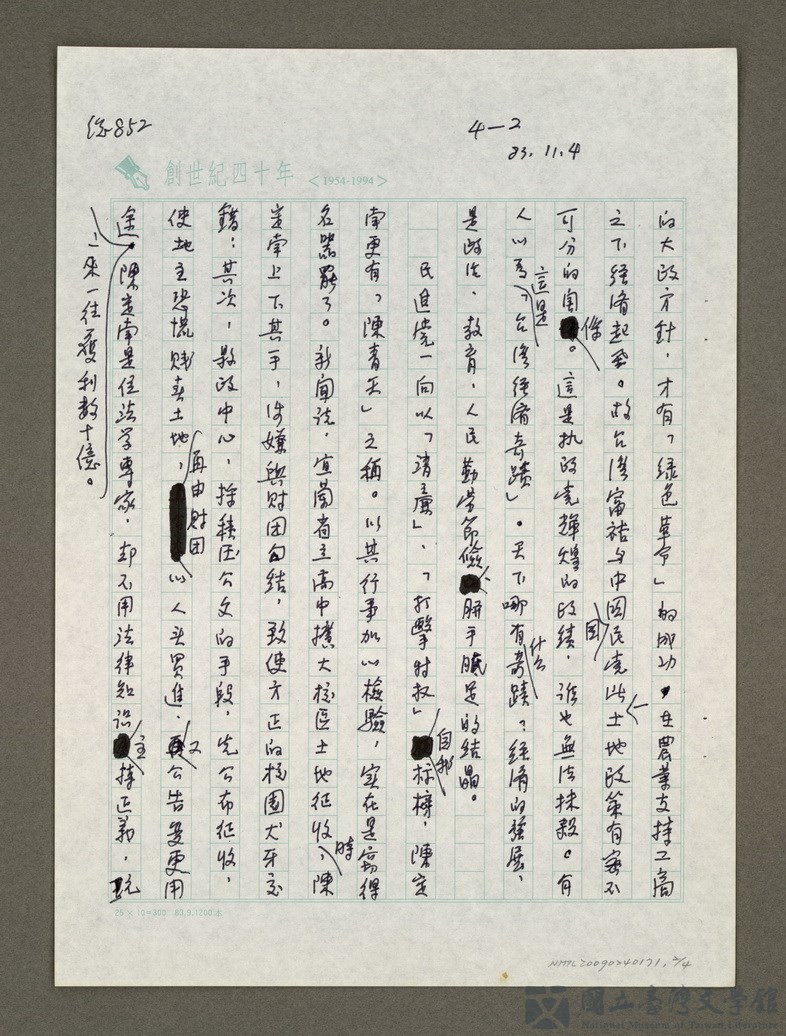 总852
4—2
83.11.4
創世紀四十年 <1954-1994>
的大政方針，才有「绿色革命」的成功，在農業支持工商
之下经濟起飛。故台湾富祜与中國国民党此土地政策有密不
可分的関係。這是执政党輝煌的政績，谁也無法抹殺。有
人以為這是「台湾经濟奇蹟」。天下哪有什么奇蹟？经濟的發展，
是政治、教育、人民勤劳節儉胼手胝足的结晶。
民進党一向以「清廉」、「打擊特权」自我标榜，陳定
南更有「陳青天」之稱。以其行事加以檢驗，实在是窃得
名器罷了。新闻说，宜蘭省立高中擴大校區土地征收時，陳
定南上下其手，涉嫌與財団勾结，致使方正的校園犬牙交
錯；其次，县政中心，採積压公文的手段，先公布征收，
使地主恐慌賤卖土地，再由財団以人头買進，又公告变更用
途，一來一往獲利数十億。
陳定南是位法学專家，却不用法律知识主持正義，玩
25×10=300 83.9.1200本
NMTL20090240171.2/4
國立臺灣文學館
National Museum of Taiwan Literature